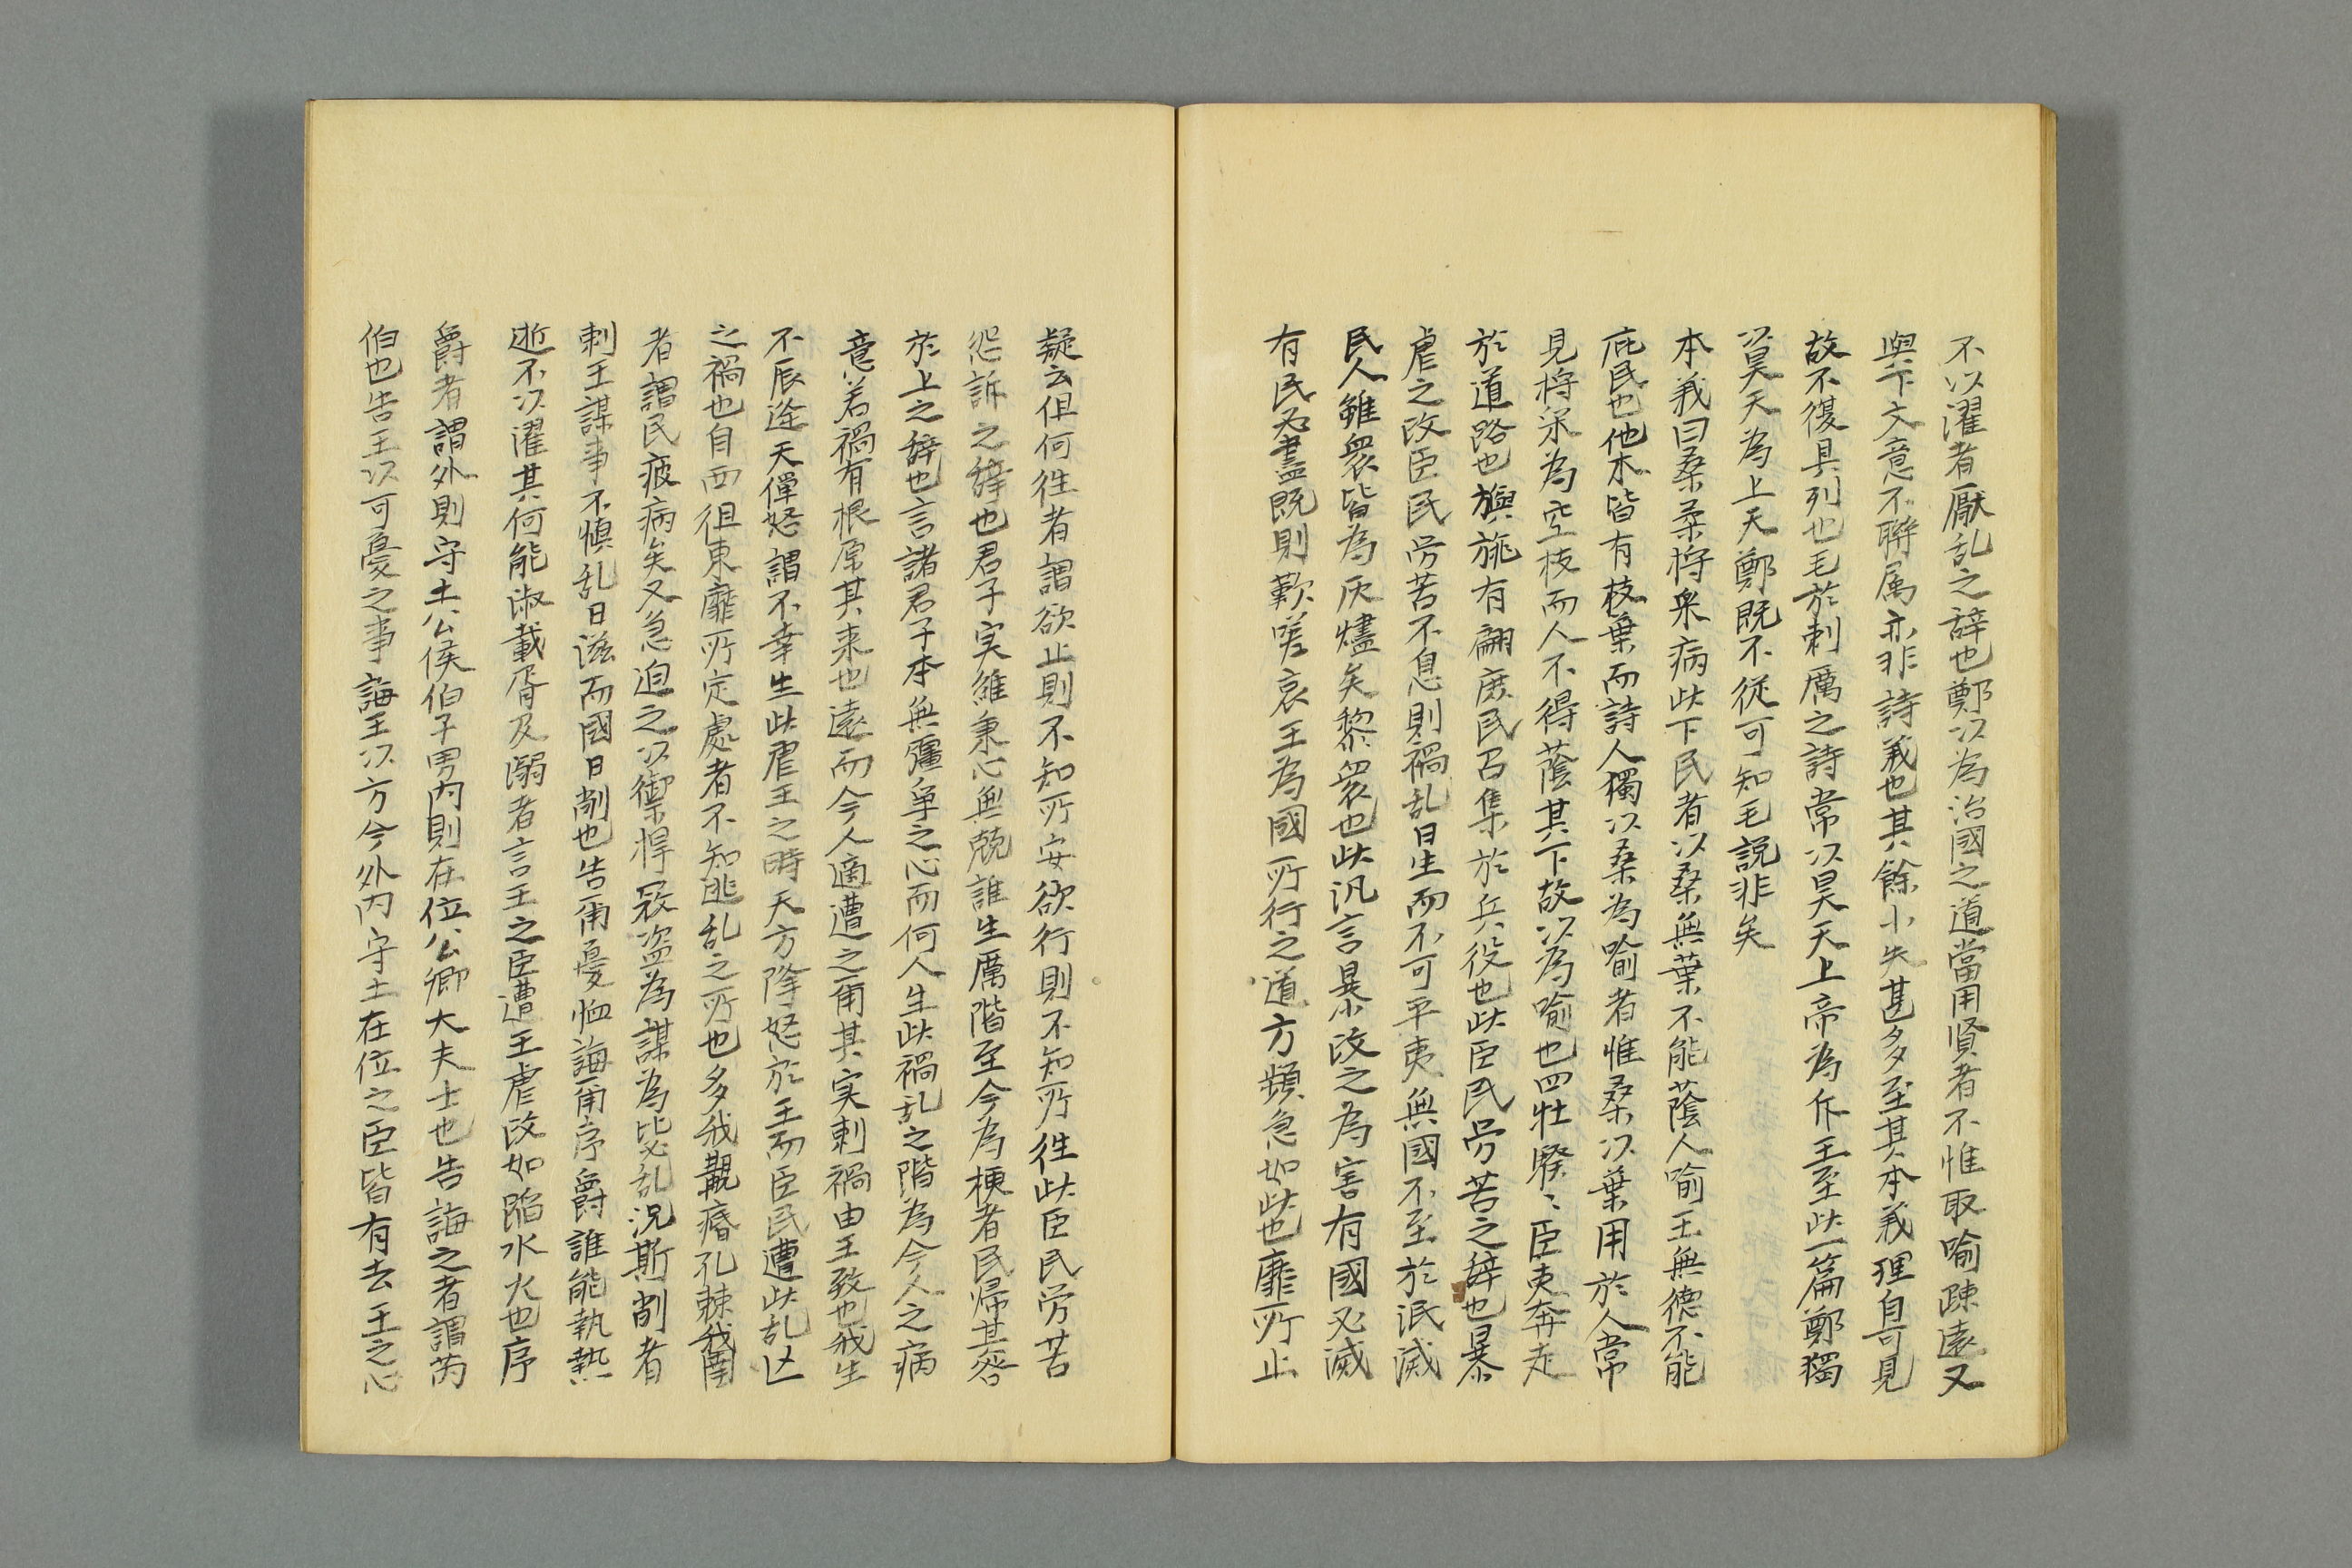 不以濯者厭乱之辞也鄭以為治國之道當用賢者不惟取喻踈遠又
與下文意不聯属亦非詩義也其餘小失甚多至其本義理自可見
故不復具列也毛於刺厲之詩常以昊天上帝為斥王至此一篇鄭獨
以昊天為上天鄭既不從可知毛説非矣
本義曰桑柔捋采病此下民者以桑無葉不能蔭人喻王無德不能
庇民也他木皆有枝葉而詩人獨以桑為喻者惟桑以葉用於人常
見捋采為空枝而人不得蔭其下故以為喻也四牡騤〻臣吏奔走
於道路也旟旐有翩庶民召集於兵役也此臣民労苦之辞也暴
虐之政臣民労苦不息則禍乱日生而不可平夷無國不至於泯滅
民人雖衆皆為灰燼矣黎衆也此汎言暴政之為害有國必滅
有民必盡既則歎嗟哀王為國所行之道方頻急如此也靡所止
疑云徂何徃者謂欲止則不知所安欲行則不知所徃此臣民労苦
怨訴之辞也君子実維秉心無競誰生厲階至今為梗者民帰其咎
於上之辞也言諸君子本無彊争之心而何人生此禍乱之階為今人之病
意若禍有根原其来也遠而今人適遭之爾其実刺禍由王致也我生
不辰逢天僤怒謂不幸生此虐王之時天方降怒於王而臣民遭此乱亡
之禍也自西徂東靡所定處者不知逃乱之所也多我覯痻孔棘我圉
者謂民疲病矣又急迫之以禦捍寇盗為謀為毖乱況斯削者
刺王謀事不慎乱日滋而國日削也告爾憂恤誨爾序爵誰能執熱
逝不以濯其何能淑載胥及溺者言王之臣遭王虐政如蹈水火也序
爵者謂外則守土公侯伯子男内則在位公卿大夫士也告誨之者謂芮
伯也告王以可憂之事誨王以方今外内守土在位之臣皆有去王之心